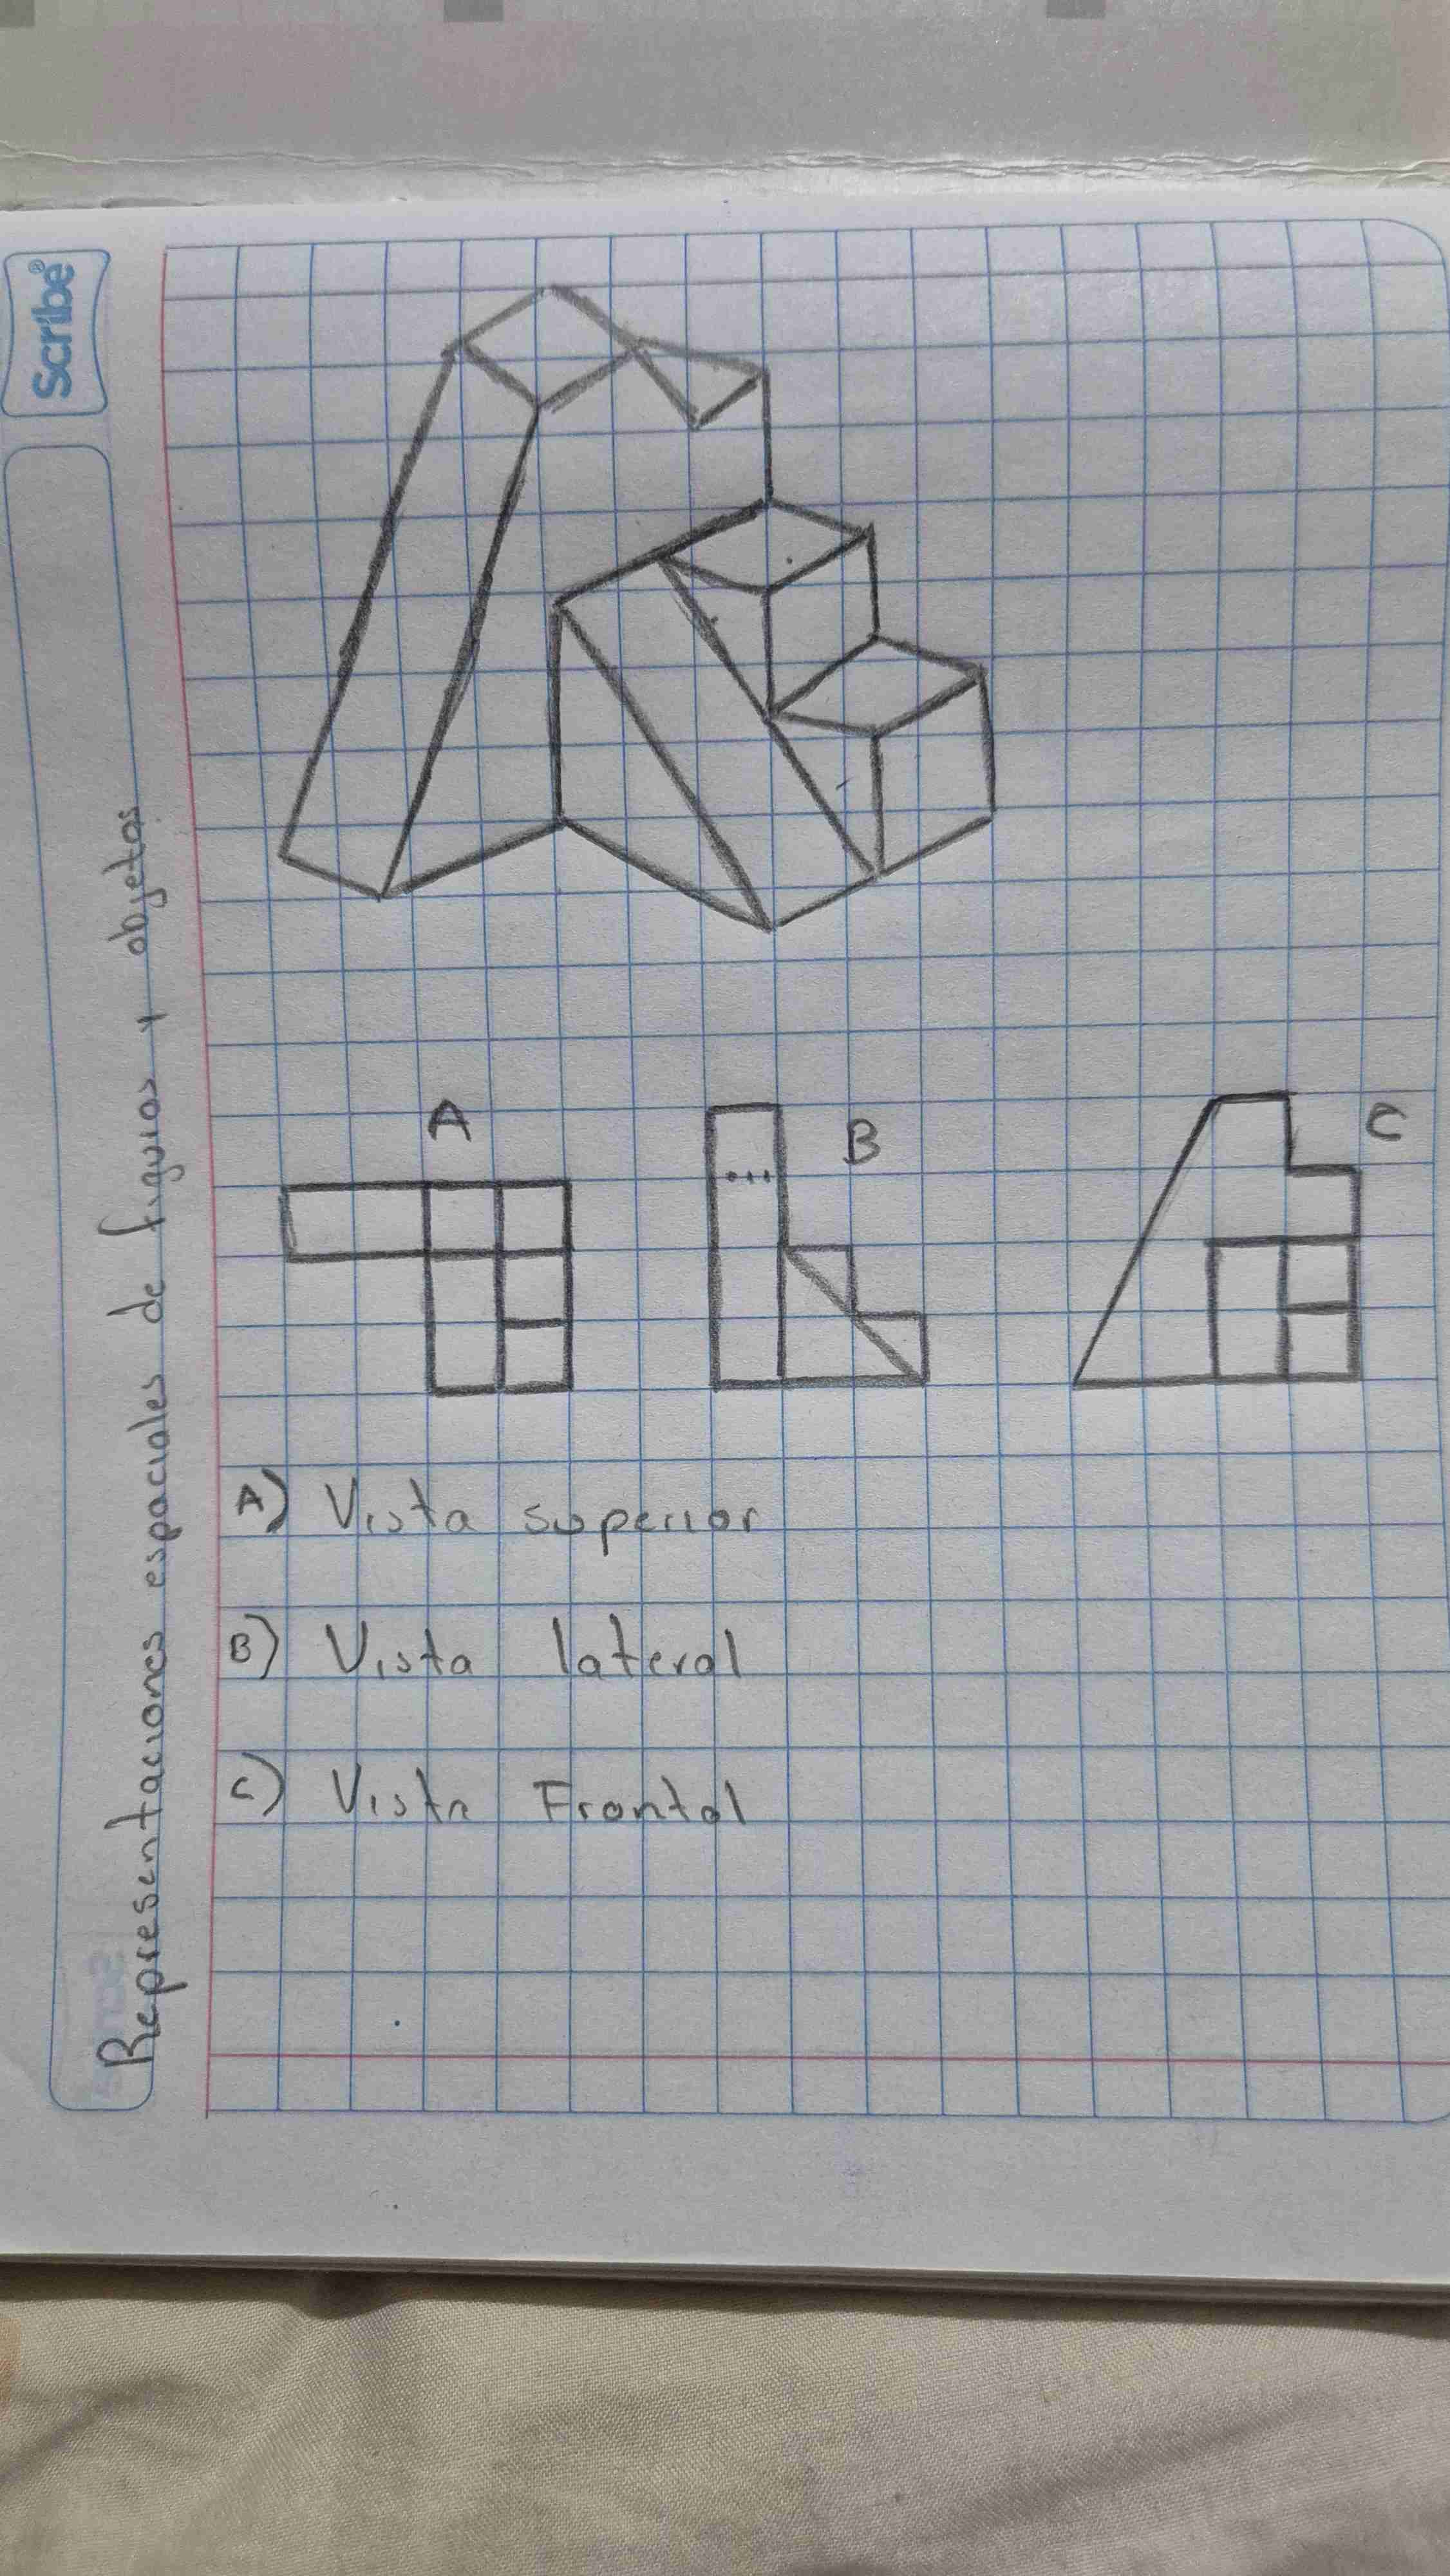 Scribe®
Representaciones espaciales de figuras y objetos
A
B
C
A) Vista superior
B) Vista lateral
C) Vista Frontal